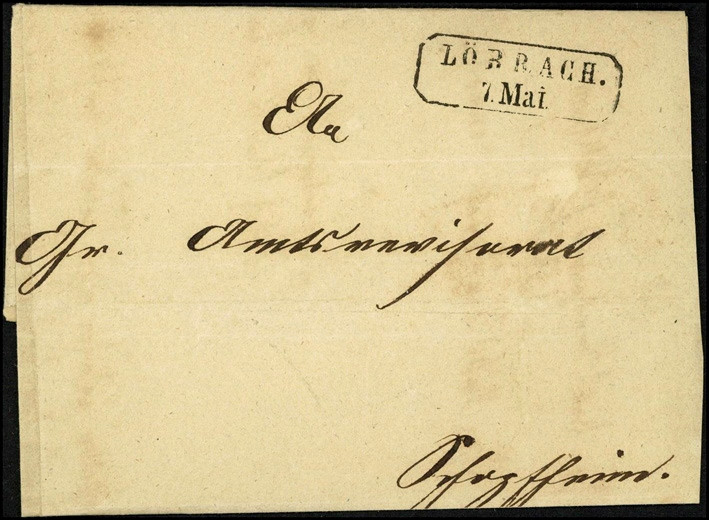 LÖRRACH.
7. Mai.
An
Gr. Amtsrevisorat
Schopfheim.